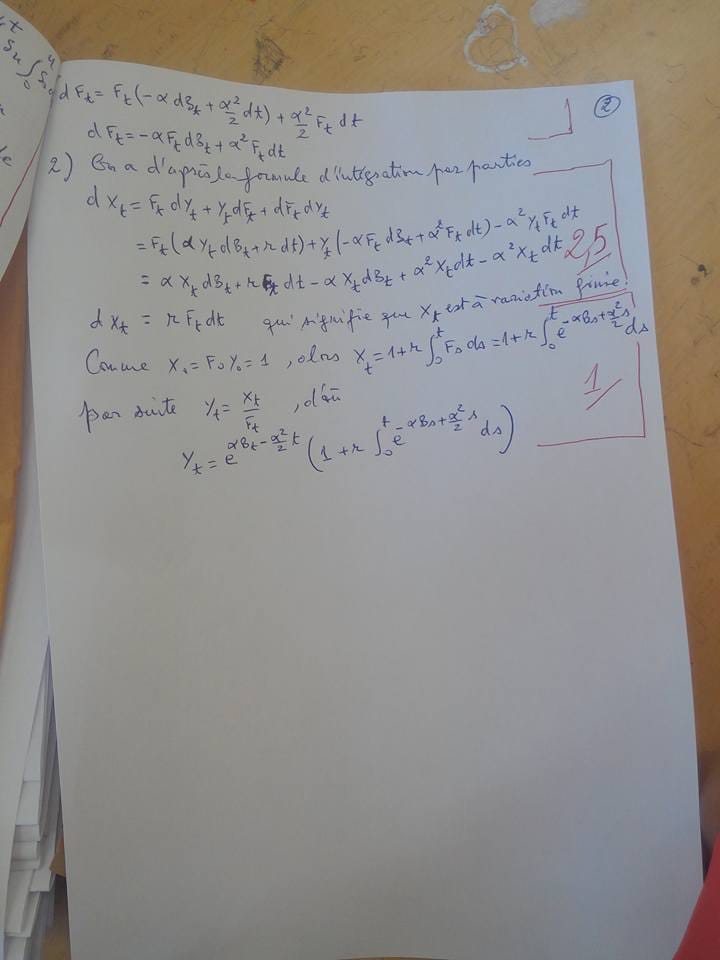 ②
dF_t = F_t(-α dB_t + α²/2 dt) + α²/2 F_t dt
1
dF_t = -αF_t dB_t + α² F_t dt
2) On a d'après la formule d'intégration par parties
dX_t = F_t dY_t + Y_t dF_t + dF_t dY_t
= F_t(αY_t dB_t + r dt) + Y_t(-αF_t dB_t + α²F_t dt) - α² Y_t F_t dt
2,5
= αX_t dB_t + r F_t dt - αX_t dB_t + α² X_t dt - α² X_t dt
dX_t = r F_t dt qui signifie que X_t est à variation finie.
Comme X_0 = F_0 Y_0 = 1, alors X_t = 1 + r ∫_0^t F_s ds = 1 + r ∫_0^t e^{-αB_s + α²/2 s} ds
1
par suite Y_t = X_t/F_t, d'où
Y_t = e^{αB_t - α²/2 t} (1 + r ∫_0^t e^{-αB_s + α²/2 s} ds)